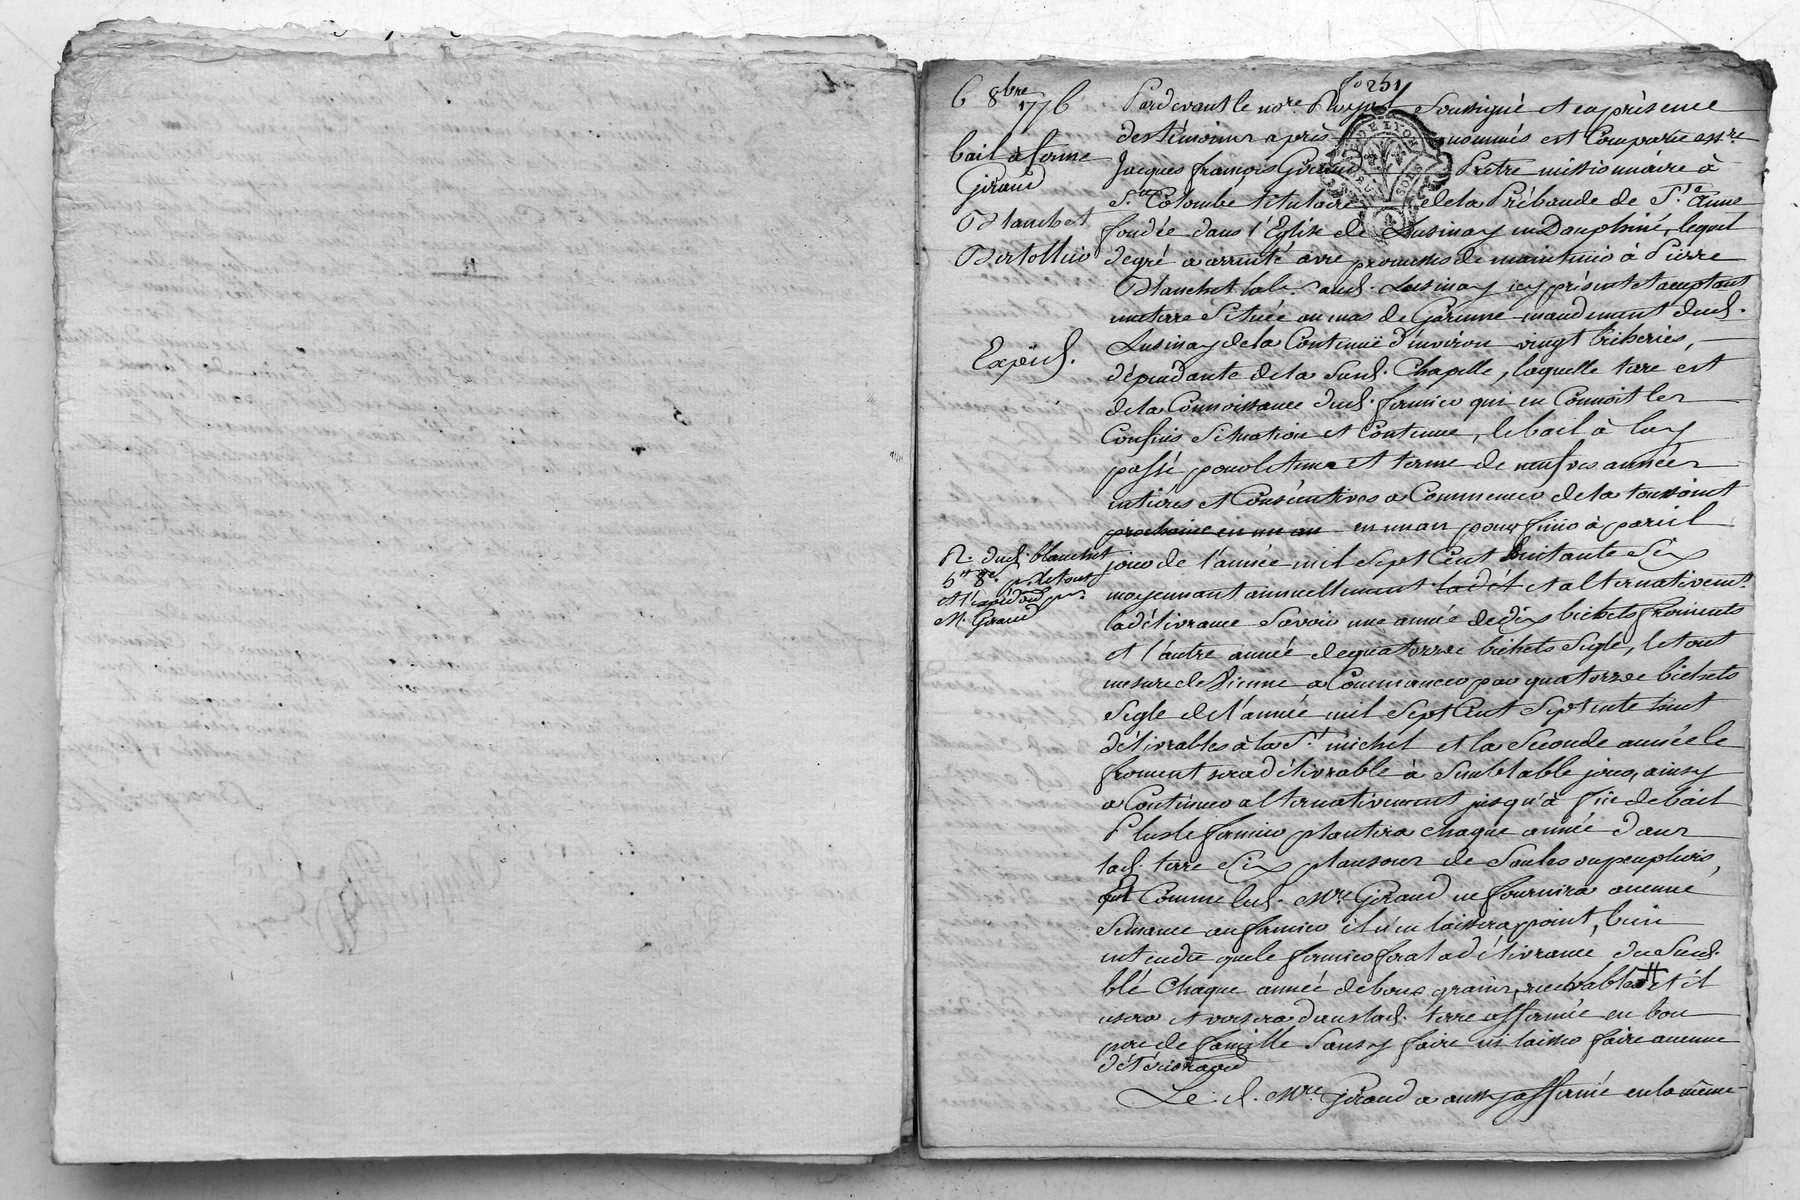 fo 251
6 8bre 1776
bail à ferme
Giraud
Blanchet
Bertollier
Expéd.
Pardevant le nore. Royal soussigné et en présence
des témoins après nommés est comparu essre
Jacques françois Giraud Prêtre missionnaire à
Ste Colombe titulaire de la Prébande de Ste anne
fondée dans l'Eglise de Lusinay en Dauphiné, lequel
de gré a arrenté avec promesses de maintenir à Pierre
Blanchet lab. aud. Lusinay icy présent et acceptant
une terre située au mas de Garenne mandement dud.
Lusinay de la Contenue d'environ vingt bicherées,
dépendante de la susd. Chapelle, laquelle terre est
de la Connoissance dud. fermier qui en Connoit les
Confins Situation et Contenue, le bail à luy
passé pour le tems et terme de neuf années
entières et Consécutives a Commencer de la toussaint
prochaine en un an en un an pour finir à pareil
jour de l'année mil Sept Cent huitante Six
moyennant annuellement et alternativemt.
la délivrance Savoir une année de dix bichets froments
et l'autre année de quatorze bichets Sigle, le tout
mesure de Vienne a Commancer par quatorze bichets
Sigle de l'année mil Sept Cent Septente huit
délivrables à la St. michel et la Seconde année le
froment sera délivrable à Semblable jour, ainsy
a Continuer alternativement jusqu'à fin de bail
Plus le fermier plantera chaque année dans
lad. terre Six plansons de Saules ou peupliers,
Et Comme led. Mre Giraud ne fournira aucune
Semance au fermier il n'en laissera point, bien
entendu que le fermier fera la délivrance du Susd.
blé Chaque année de bons grains, recevables # et il
usera et versera dans lad. terre affermée en bon
pere de famille Sans y faire ni laisser faire aucune
détérioraon
Le d. Mre. Giraud a aussy affermé en la même
R. dud. blanchet
5tt 8s. p. le tout
et l'expédon pr.
M. Giraud